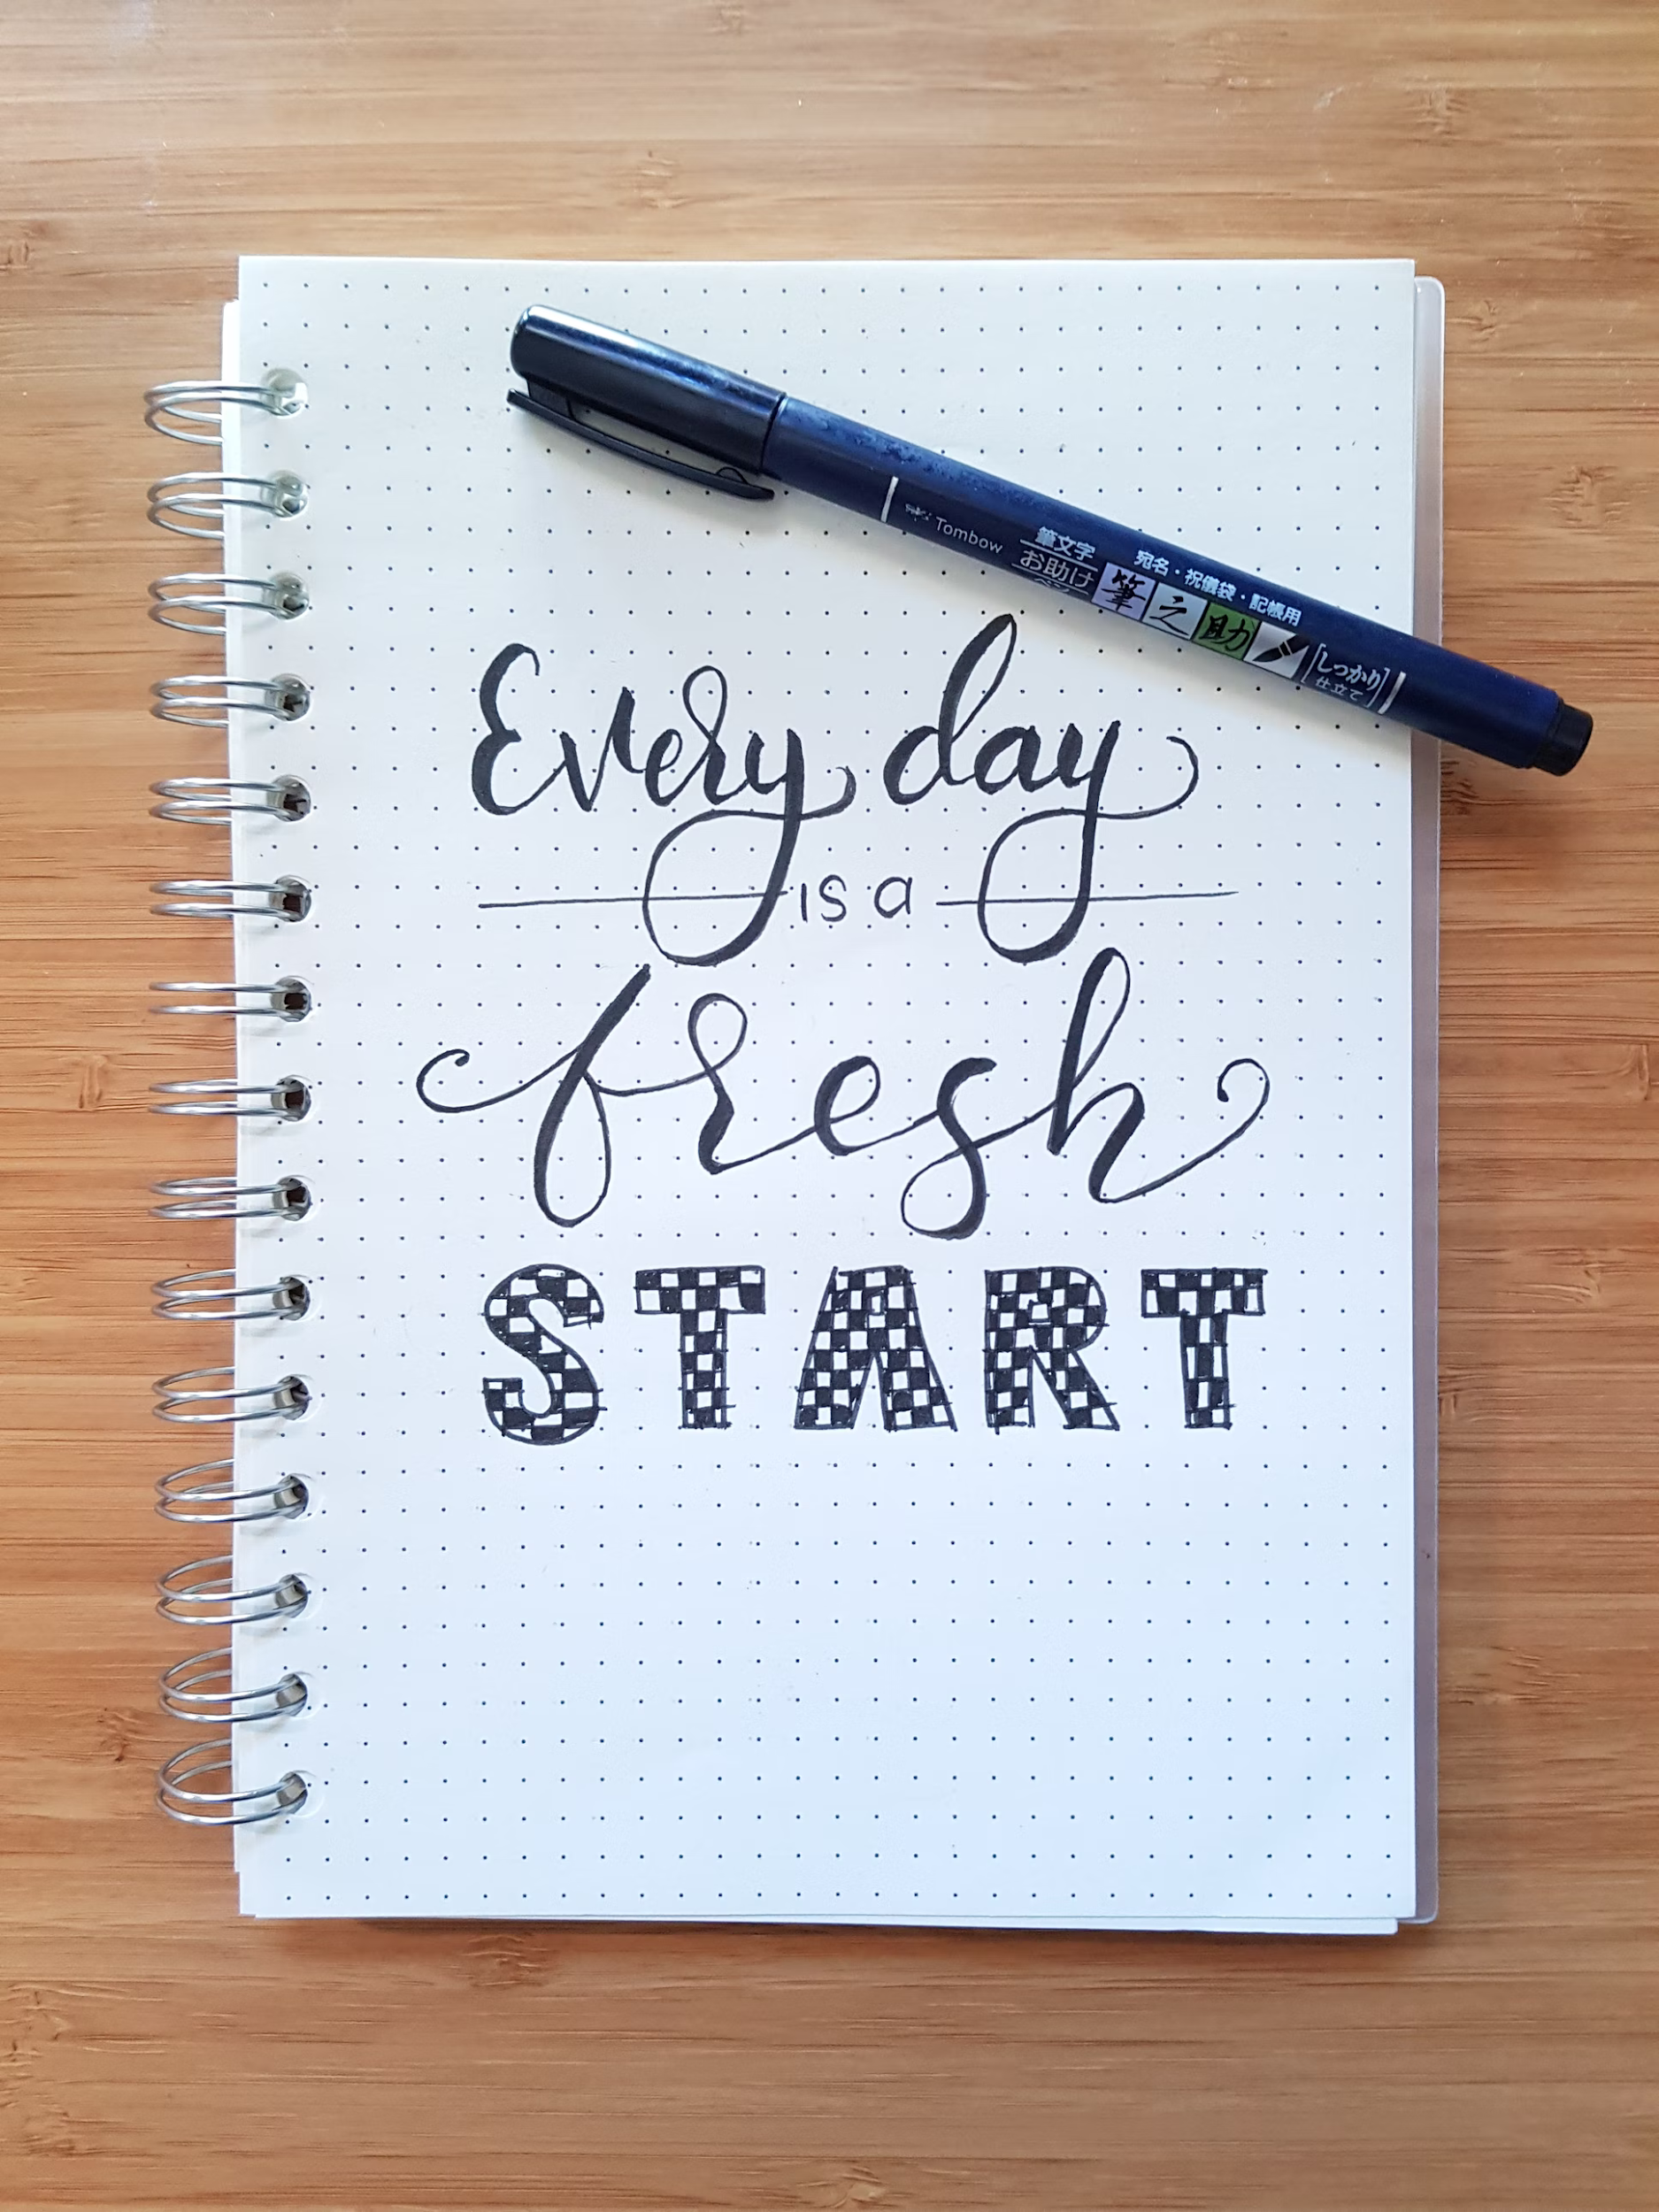 Tombow
筆文字
お助け
ペン
宛名・祝儀袋・記帳用
筆之助
[しっかり]
仕立て
Every day
is a
fresh
START